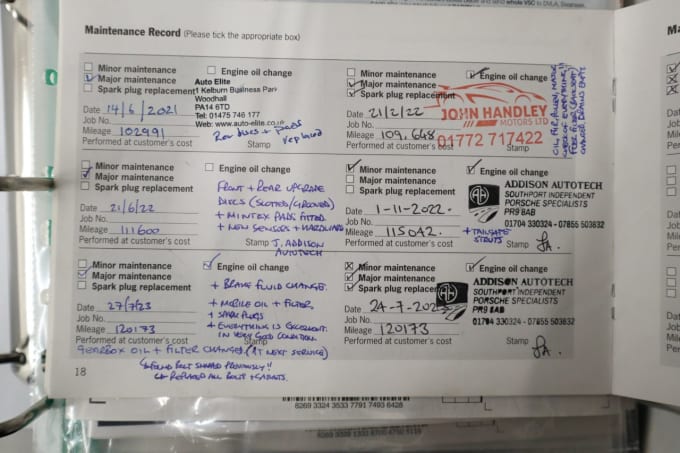 Maintenance Record (Please tick the appropriate box)
Minor maintenance
Engine oil change
Major maintenance
Spark plug replacement
Auto Elite
1 Kelburn Business Park
Woodhall
PA14 6TD
Tel: 01475 746 177
Web: www.auto-elite.co
Date 14/6/2021
Job No.
Mileage 102991
Performed at customer's cost
Stamp
Rear Discs + Pads
replaced
Minor maintenance
Engine oil change
Major maintenance
Spark plug replacement
Date 21/2/22
Job No.
Mileage 109,648
Performed at customer's cost
Stamp
JOHN HANDLEY
MOTORS LTD
01772 717422
Minor maintenance
Engine oil change
Major maintenance
Spark plug replacement
Date 21/6/22
Job No.
Mileage 111600
Performed at customer's cost
Stamp
FRONT + REAR UPGRADE
DISCS (SLOTTED/GROOVED)
+ MINTEX PADS FITTED
+ NEW SENSORS + HARDWARE
J. ADDISON
AUTOTECH
Minor maintenance
Engine oil change
Major maintenance
Spark plug replacement
Date 1-11-2022.
Job No.
Mileage 115042.
Performed at customer's cost
Stamp
ADDISON AUTOTECH
SOUTHPORT INDEPENDENT
PORSCHE SPECIALISTS
PR9 8AB
01704 330324 - 07855 503632
+ TAILGATE
STRUTS
JA.
Minor maintenance
Engine oil change
Major maintenance
Spark plug replacement
Date 27/7/23
Job No.
Mileage 120173
Performed at customer's cost
Stamp
+ BRAKE FLUID CHANGE.
+ MOBILE OIL + FILTER
+ SPARK PLUGS
+ EVERYTHING IS EXCELLENT.
IN VERY GOOD CONDITION
GEARBOX OIL + FILTER CHANGED (AT NEXT SERVICE)
REPLACED ALL BOLTS + GASKETS.
Minor maintenance
Engine oil change
Major maintenance
Spark replacement
Date 24-7-202
Job No.
Mileage 120173
Performed at customer's cost
Stamp
ADDISON AUTOTECH
SOUTHPORT INDEPENDENT
PORSCHE SPECIALISTS
PR9 8AB
01704 330324 - 07855 503632
JA.
18
8269 3324 3533 7791 7493 6428